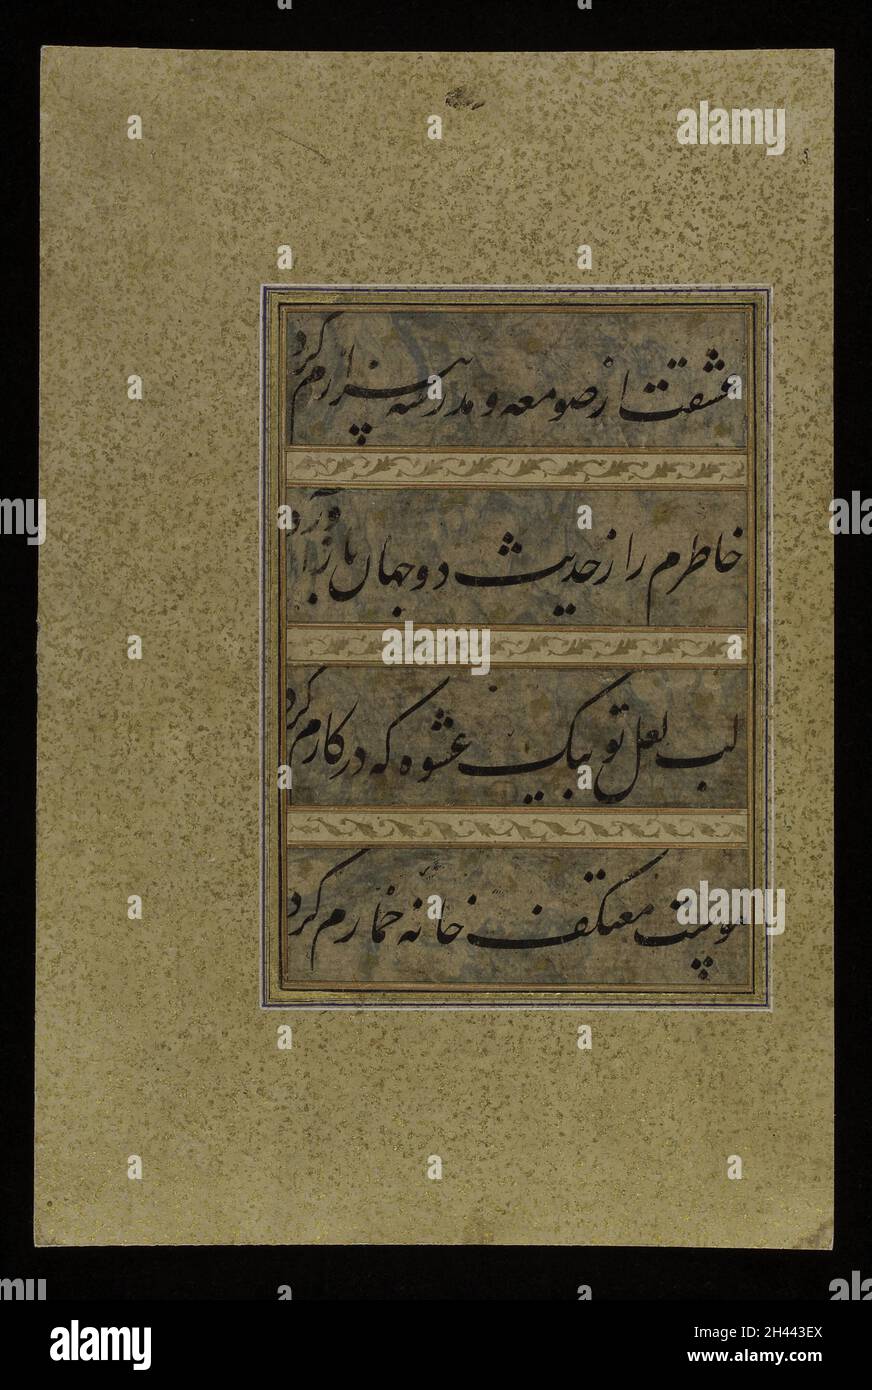 alamy
عشقت از صومعه و مدرسه بیزارم کرد
خاطرم را ز حدیث دو جهان باز آورد
alamy
لب لعل تو بیک عشوه که در کارم کرد
alamy
معتکف خانه خمارم کرد
alamy
Image ID: 2H443EX
www.alamy.com